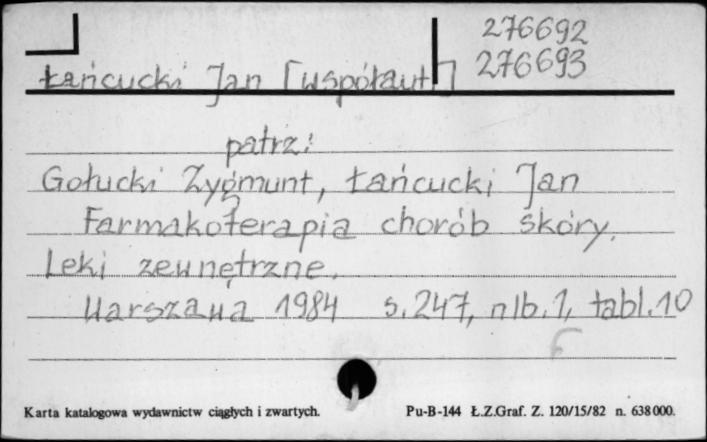 276692
276693
Łańcucki Jan [współaut]
patrz:
Gołucki Zygmunt, Łańcucki Jan
Farmakoterapia chorób skóry.
Leki zewnętrzne.
Warszawa 1984 s. 247, nlb. 1, tabl. 10
Karta katalogowa wydawnictw ciągłych i zwartych. Pu-B-144 Ł.Z.Graf. Z. 120/15/82 n. 638000.